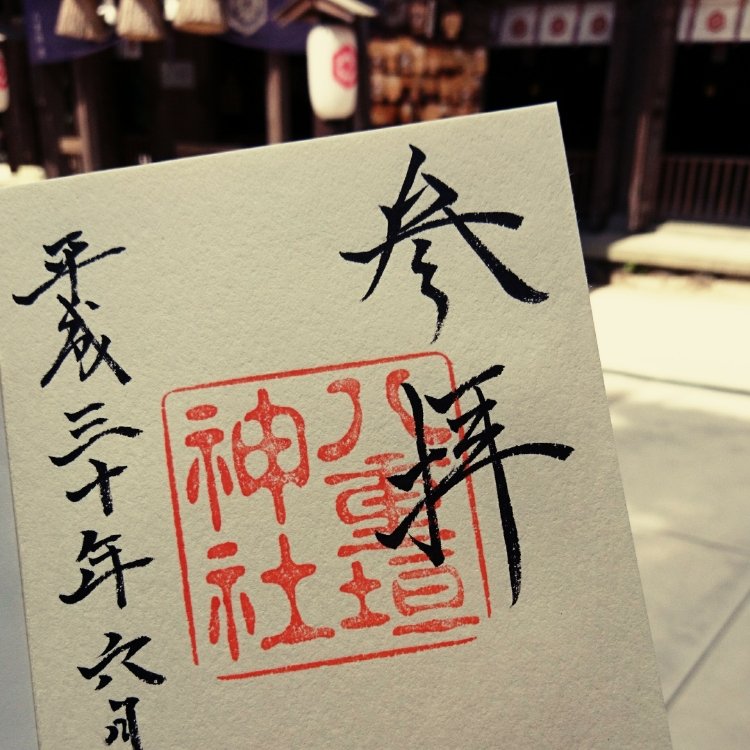 参拝
八重垣
神社
平成三十年六月